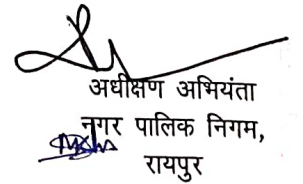 अधीक्षण अभियंता
नगर पालिक निगम,
रायपुर